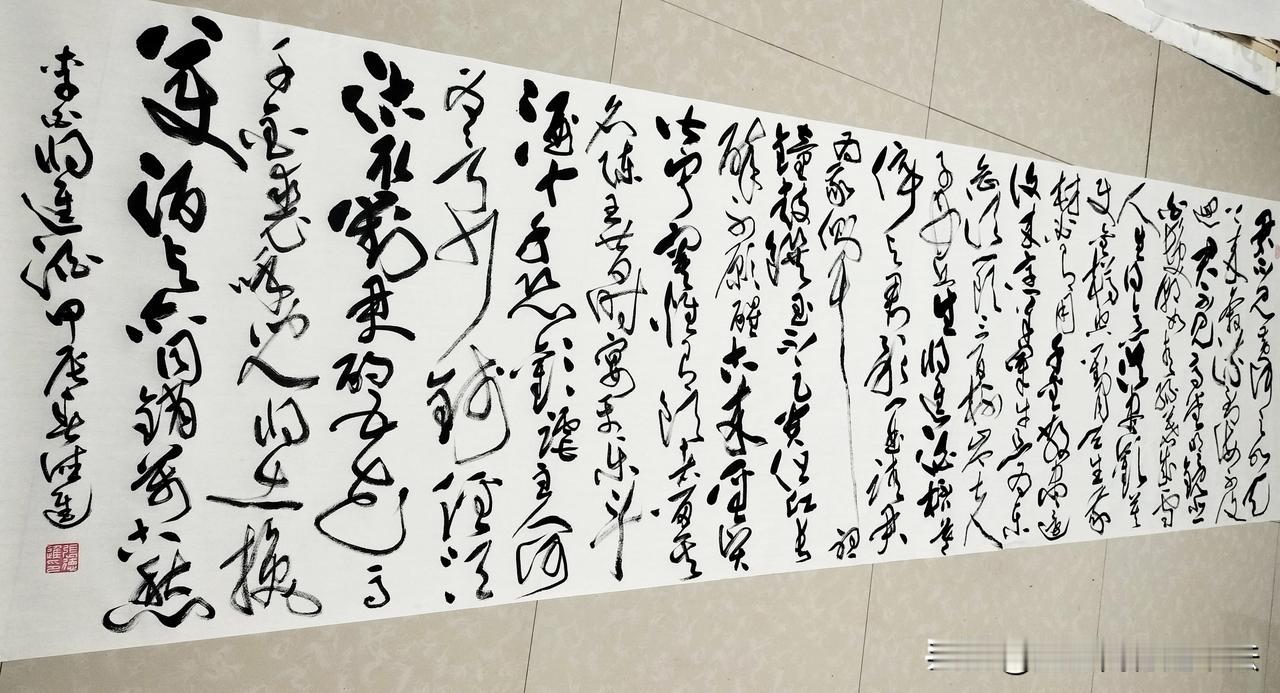 君不见黄河之水天
上来奔流到海不复
回君不见高堂明镜悲
白发朝如青丝暮成雪
人生得意须尽欢莫
使金樽空对月天生我
材必有用千金散尽还
复来烹羊宰牛且为乐
会须一饮三百杯岑夫
子丹丘生将进酒杯莫
停与君歌一曲请君
为我倾耳听
钟鼓馔玉不足贵但愿长
醉不愿醒古来圣贤
皆寂寞惟有饮者留其
名陈王昔时宴平乐斗
酒十千恣欢谑主人何
为言少钱径须
沽取对君酌五花马
千金裘呼儿将出换
美酒与尔同销万古愁
李白将进酒甲辰春德进